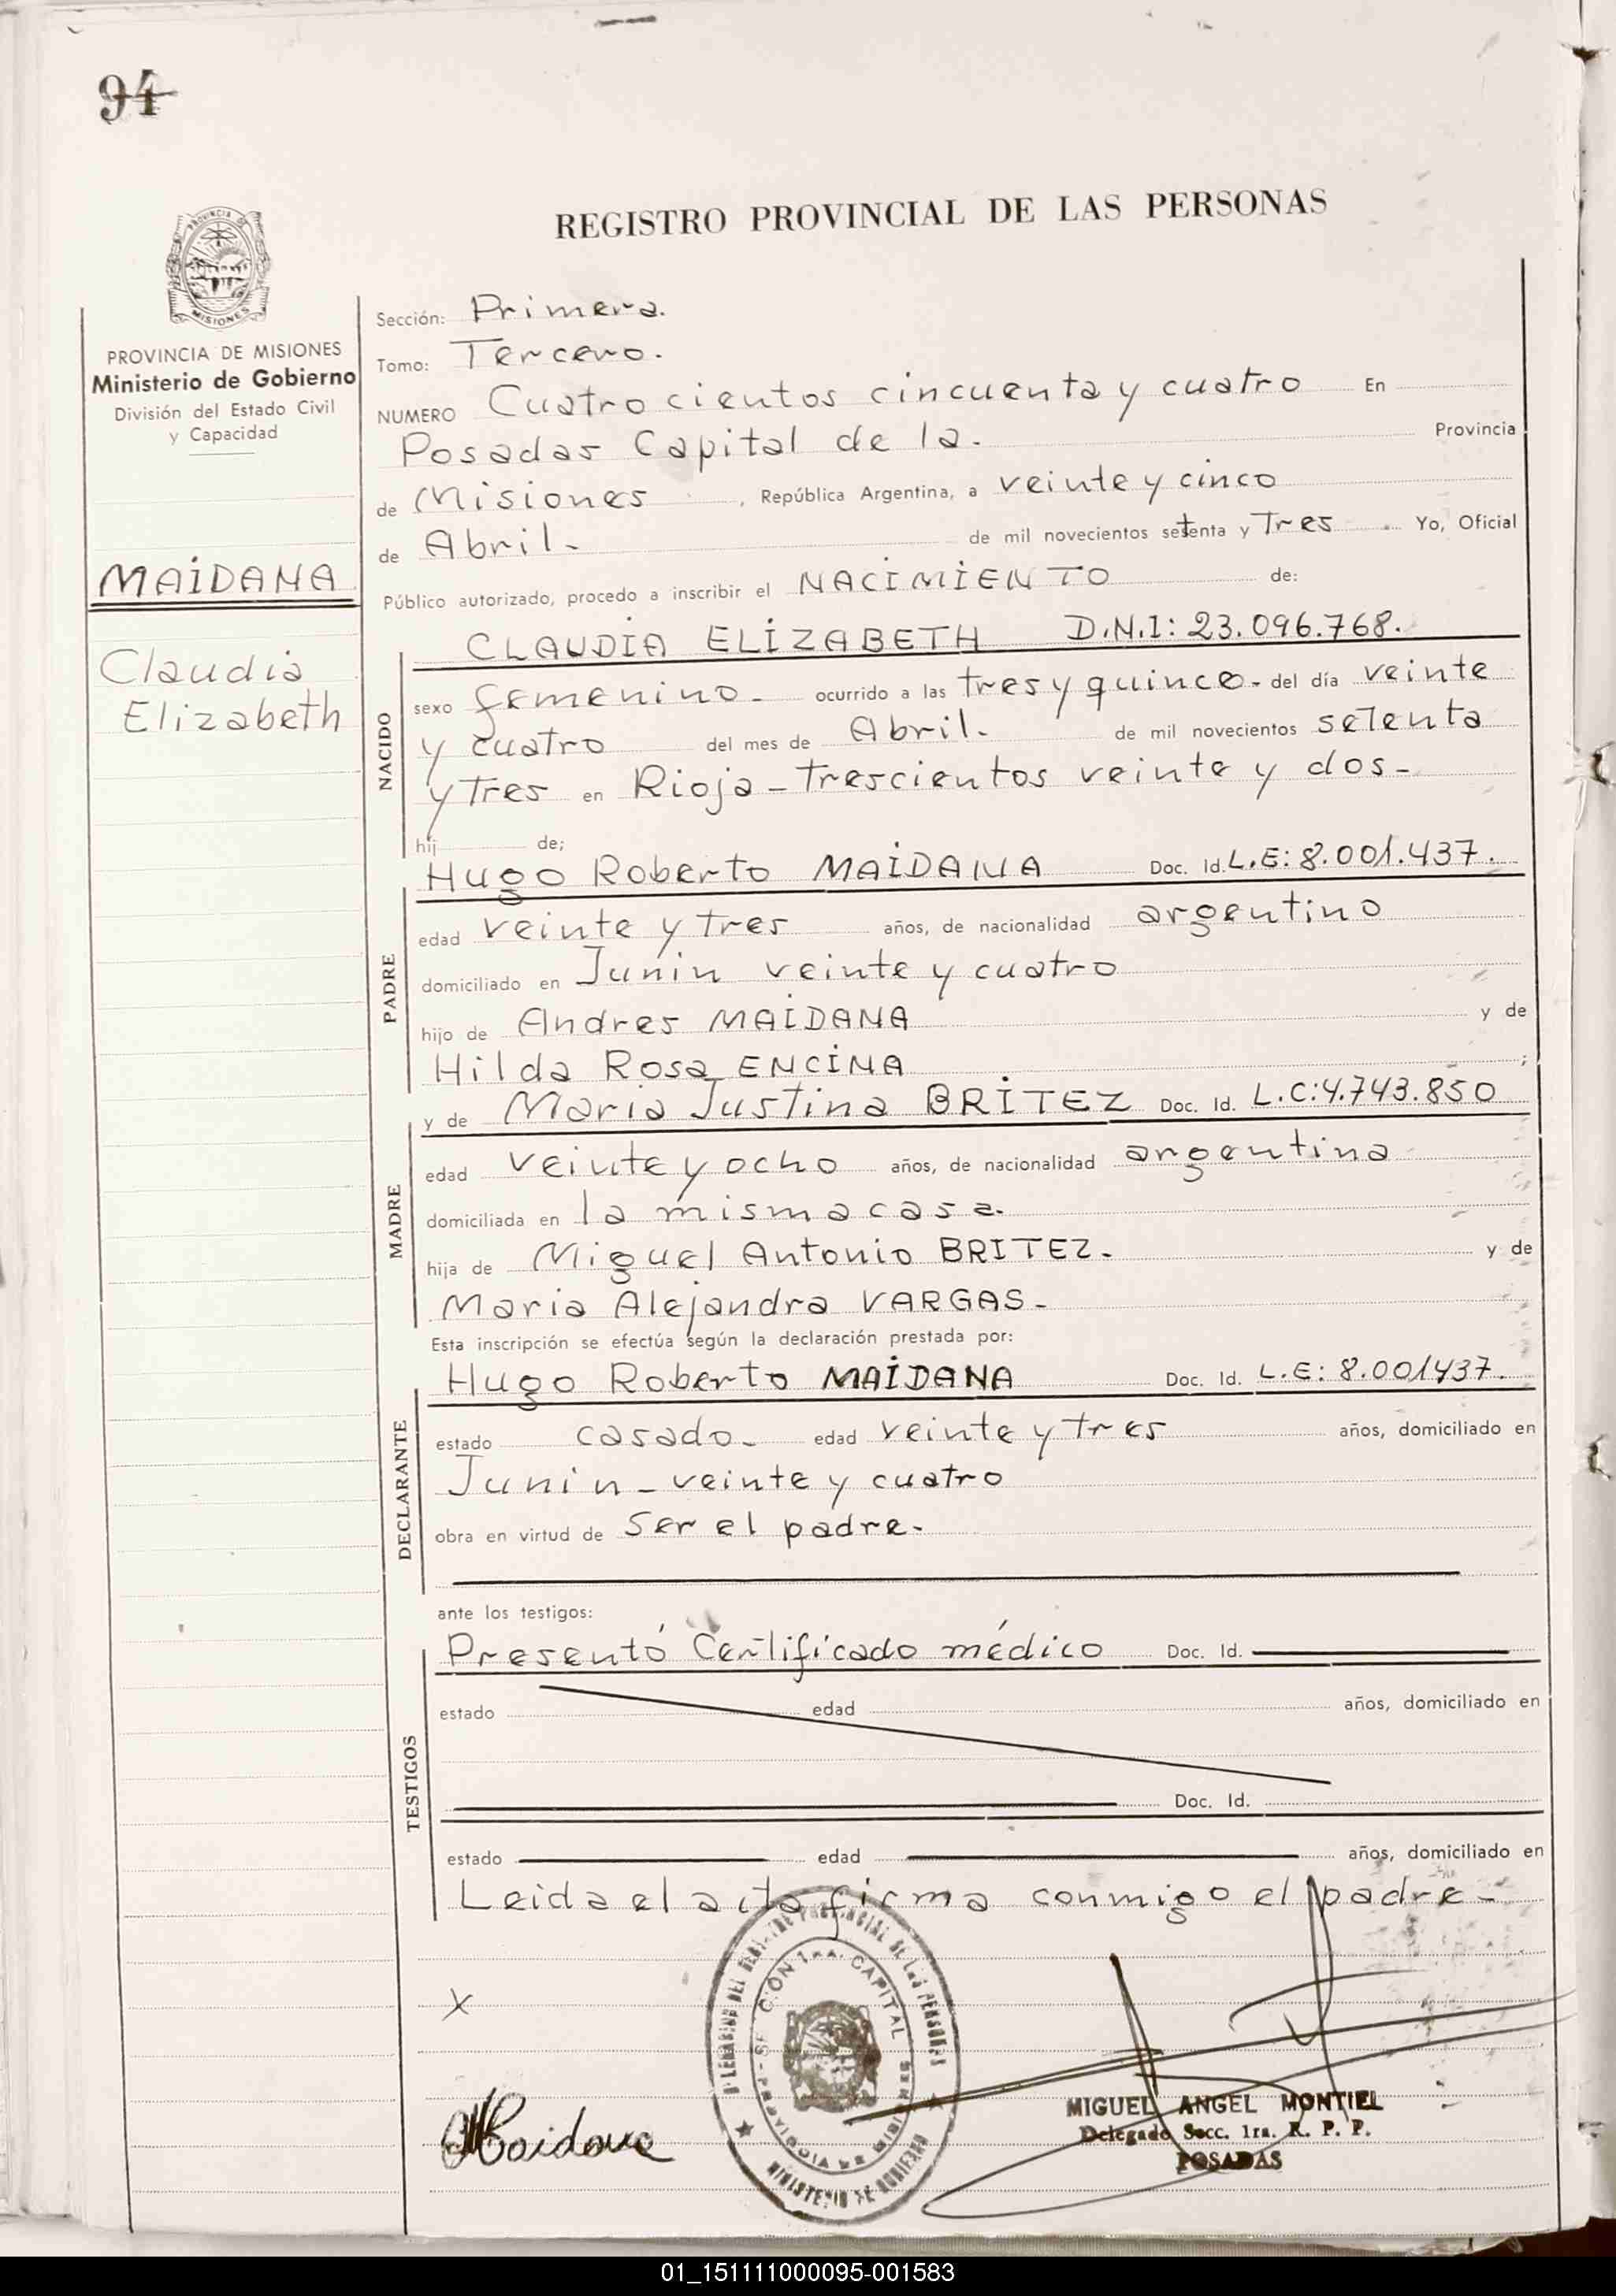 94
REGISTRO PROVINCIAL DE LAS PERSONAS
PROVINCIA DE MISIONES
PROVINCIA DE MISIONES
Ministerio de Gobierno
División del Estado Civil
y Capacidad
MAIDANA
Claudia
Elizabeth
Sección: Primera.
Tomo: Tercero.
NUMERO Cuatrocientos cincuenta y cuatro En
Posadas Capital de la. Provincia
de Misiones, República Argentina, a veinte y cinco
de Abril- de mil novecientos setenta y Tres Yo, Oficial
Público autorizado, procedo a inscribir el NACIMIENTO de:
CLAUDIA ELIZABETH D.N.I: 23.096.768.
NACIDO
sexo femenino- ocurrido a las tres y quince- del día veinte
y cuatro del mes de Abril- de mil novecientos setenta
y Tres en Rioja - trescientos veinte y dos-
hij de;
Hugo Roberto MAIDANA Doc. Id. L.E: 8.001.437.
PADRE
edad veinte y tres años, de nacionalidad argentino
domiciliado en Junin veinte y cuatro
hijo de Andres MAIDANA y de
Hilda Rosa ENCINA ;
y de Maria Justina BRITEZ Doc. Id. L.C:4.743.850
MADRE
edad veinte y ocho años, de nacionalidad argentina
domiciliada en la misma casa.
hija de Miguel Antonio BRITEZ. y de
Maria Alejandra VARGAS-
Esta inscripción se efectúa según la declaración prestada por:
Hugo Roberto MAIDANA Doc. Id. L.E: 8.001437.
DECLARANTE
estado casado- edad veinte y tres años, domiciliado en
Junin - veinte y cuatro
obra en virtud de ser el padre-
ante los testigos:
Presentó Certificado médico Doc. Id.
TESTIGOS
estado edad años, domiciliado en
Doc. Id.
estado edad años, domiciliado en
Leida el acta firma conmigo el padre-
X
DELEGACION DEL REGISTRO PROVINCIAL DE LAS PERSONAS
SECCION 1RA. CAPITAL
PROVINCIA DE MISIONES
MINISTERIO DE GOBIERNO
Maidana
MIGUEL ANGEL MONTIEL
Delegado Secc. 1ra. R. P. P.
POSADAS
01_151111000095-001583